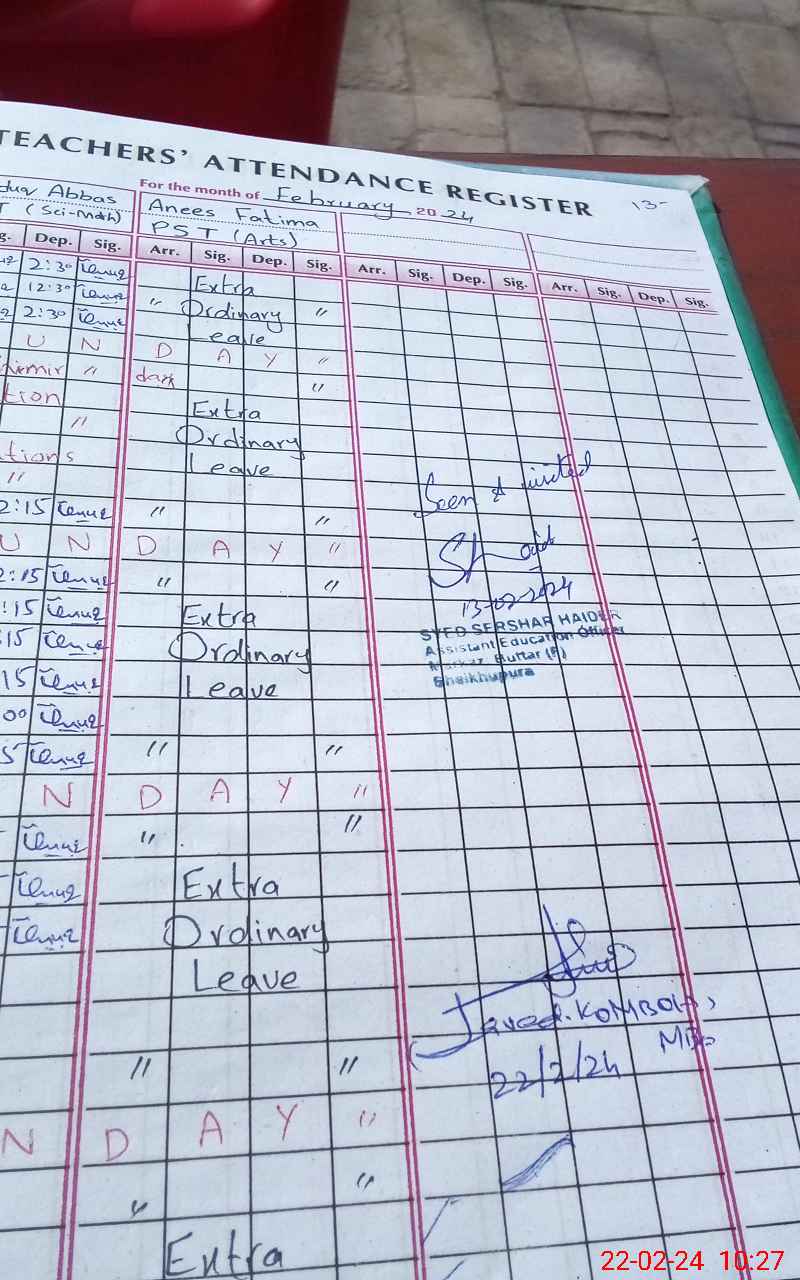 TEACHERS' ATTENDANCE REGISTER
For the month of February 2024
13-
Abbas
(Sci-Math)
Anees Fatima
PST (Arts)
Dep. Sig. Arr. Sig. Dep. Sig. Arr. Sig. Dep. Sig. Arr. Sig. Dep. Sig.
2:30 Extra
12:30 " Ordinary "
2:30 Leave
U N D A Y "
" day "
tion Extra
" Ordinary
tions Leave
"
2:15 " "
U N D A Y "
2:15 " "
:15 Extra
:15 Ordinary
15 Leave
00
5 " "
N D A Y "
" "
Extra
Ordinary
Leave
" "
N D A Y "
" "
Extra
Seen & visited
13-02-2024
SYED SERSHAR HAIDER
Assistant Education Officer
Markaz Buttar (F)
Sheikhupura
Javed. KOMBOH
22/2/24
22-02-24 10:27